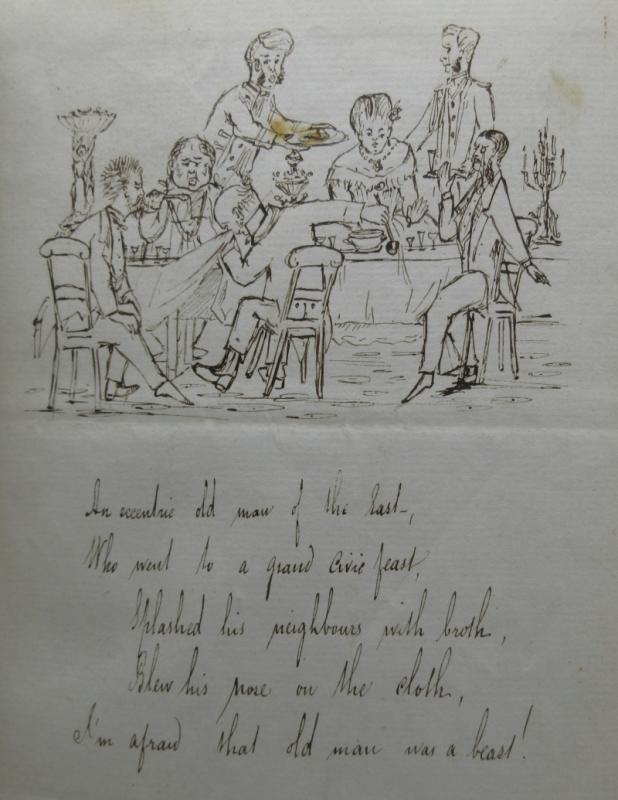 An eccentric old man of the East,
Who went to a grand civic feast,
Splashed his neighbours with broth,
Blew his nose on the cloth,
I'm afraid that old man was a beast!